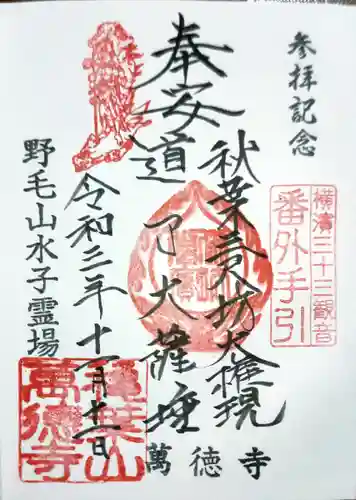 参拝記念
横濱三十三観音
番外手引
秋葉三尺坊大権現
奉安道了大薩埵
令和三年十一月十一日
野毛山水子霊場
萬徳寺
萬德寺